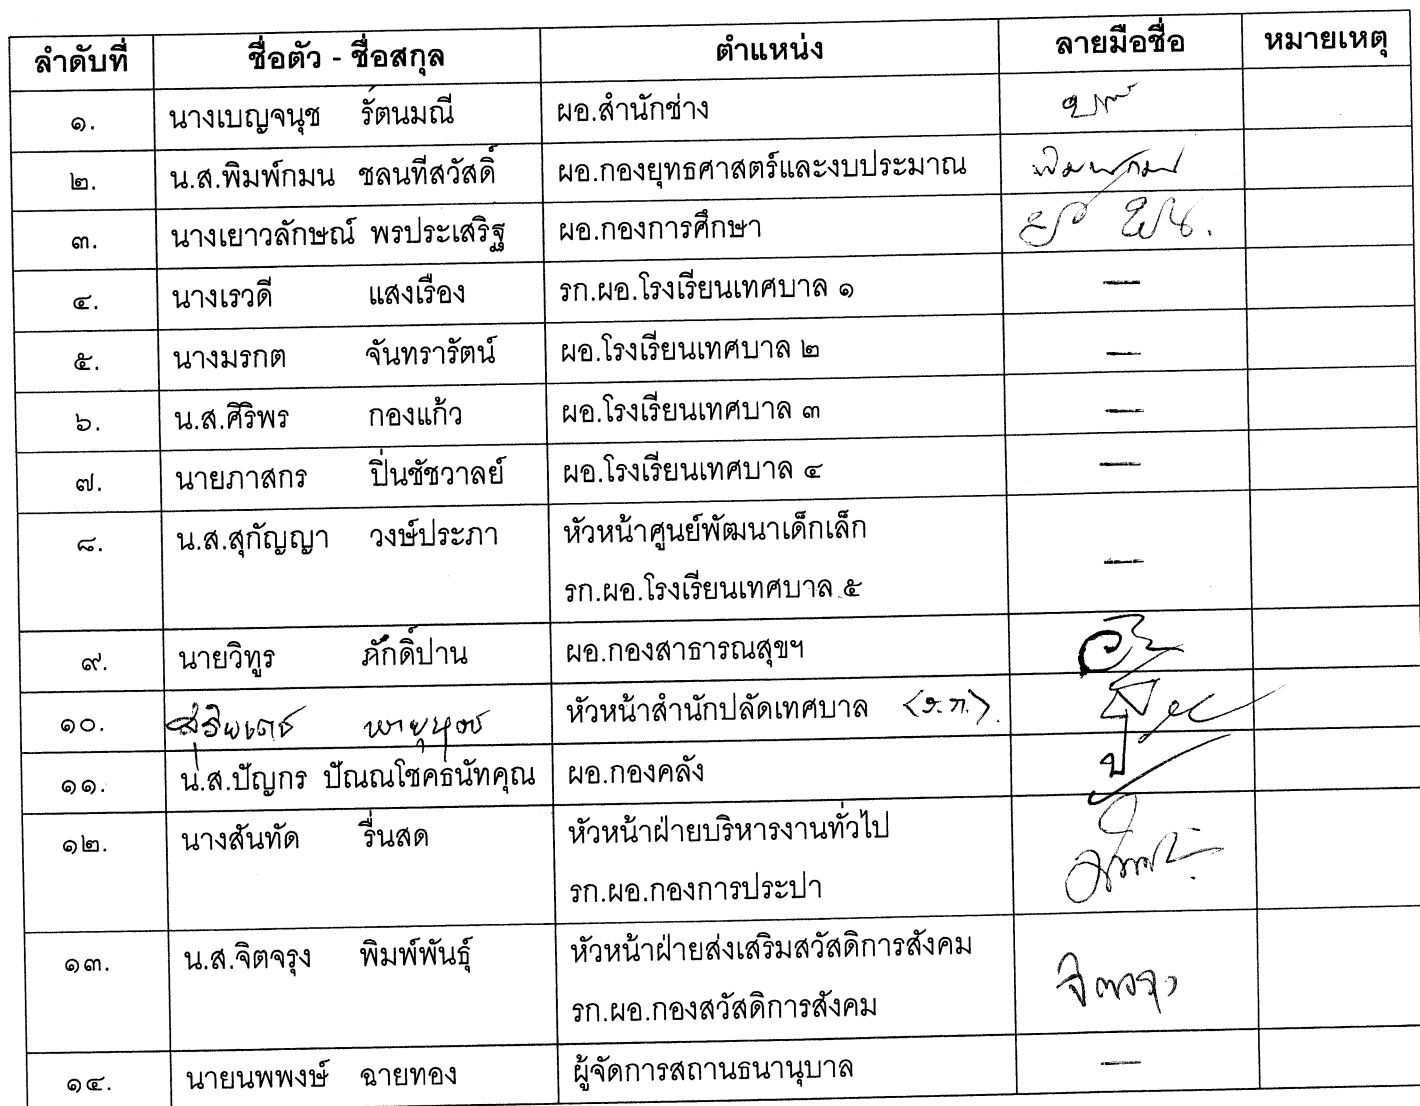 ลำดับที่ ชื่อตัว - ชื่อสกุล ตำแหน่ง ลายมือชื่อ หมายเหตุ
๑. นางเบญจนุช รัตนมณี ผอ.สำนักช่าง
๒. น.ส.พิมพ์กมน ชลนทีสวัสดิ์ ผอ.กองยุทธศาสตร์และงบประมาณ พิมพ์กมน
๓. นางเยาวลักษณ์ พรประเสริฐ ผอ.กองการศึกษา
๔. นางเรวดี แสงเรือง รก.ผอ.โรงเรียนเทศบาล ๑ —
๕. นางมรกต จันทรารัตน์ ผอ.โรงเรียนเทศบาล ๒ —
๖. น.ส.ศิริพร กองแก้ว ผอ.โรงเรียนเทศบาล ๓ —
๗. นายภาสกร ปิ่นชัชวาลย์ ผอ.โรงเรียนเทศบาล ๔ —
๘. น.ส.สุกัญญา วงษ์ประภา หัวหน้าศูนย์พัฒนาเด็กเล็ก
รก.ผอ.โรงเรียนเทศบาล ๕ —
๙. นายวิฑูร ภักดิ์ปาน ผอ.กองสาธารณสุขฯ
๑๐. หัวหน้าสำนักปลัดเทศบาล <ร.ก.>
๑๑. น.ส.ปัญกร ปัณณโชคธนัทคุณ ผอ.กองคลัง
๑๒. นางสันทัด รื่นสด หัวหน้าฝ่ายบริหารงานทั่วไป
รก.ผอ.กองการประปา
๑๓. น.ส.จิตจรุง พิมพ์พันธุ์ หัวหน้าฝ่ายส่งเสริมสวัสดิการสังคม
รก.ผอ.กองสวัสดิการสังคม จิตจรุง
๑๔. นายนพพงษ์ ฉายทอง ผู้จัดการสถานธนานุบาล —